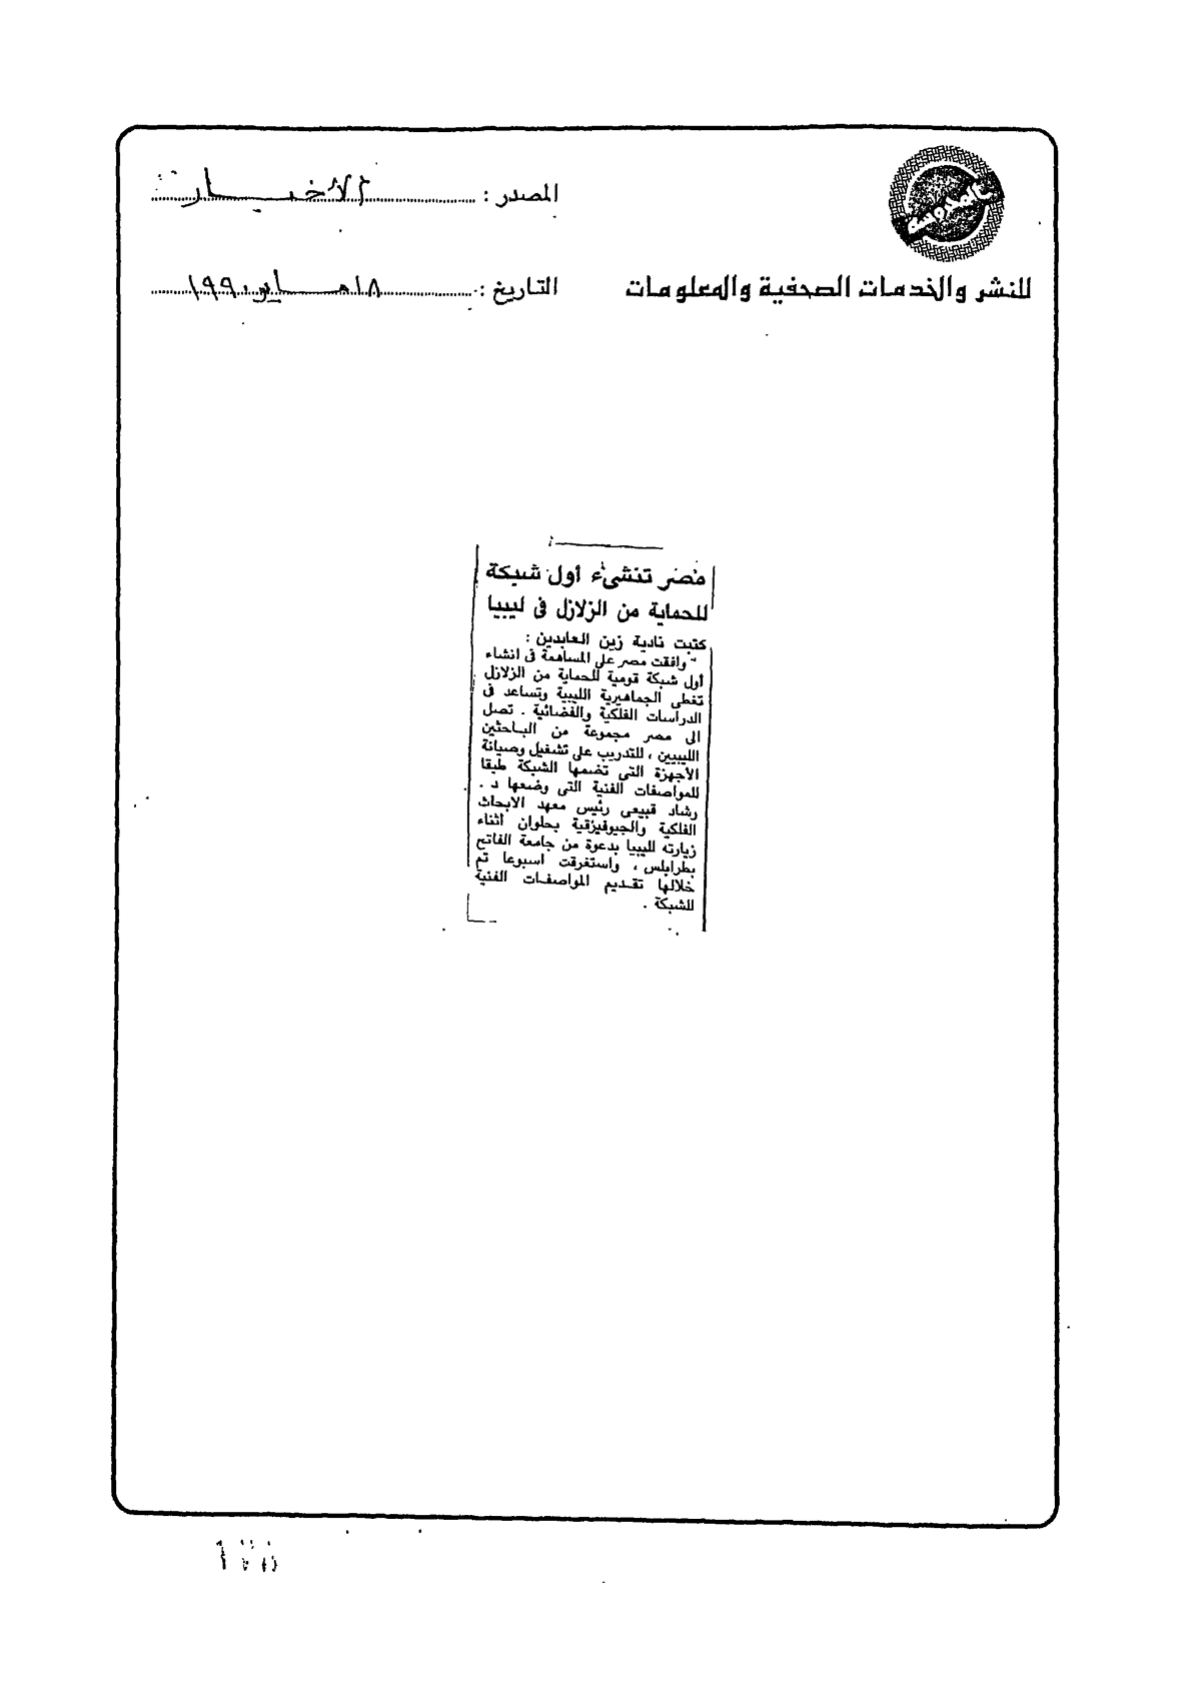 المصدر : الأخبار
للنشر والخدمات الصحفية والمعلومات
التاريخ : ١٨ مايو ١٩٩٠
مصر تنشىء أول شبكة
للحماية من الزلازل فى ليبيا
كتبت نادية زين العابدين :
وافقت مصر على المساهمة فى انشاء
أول شبكة قومية للحماية من الزلازل
تغطى الجماهيرية الليبية وتساعد فى
الدراسات الفلكية والفضائية . تصل
الى مصر مجموعة من الباحثين
الليبيين ، للتدريب على تشغيل وصيانة
الأجهزة التى تضمها الشبكة طبقا
للمواصفات الفنية التى وضعها د .
رشاد قبيعى رئيس معهد الابحاث
الفلكية والجيوفيزقية بحلوان أثناء
زيارته لليبيا بدعوة من جامعة الفاتح
بطرابلس ، واستغرقت اسبوعا تم
خلالها تقديم المواصفات الفنية
للشبكة .